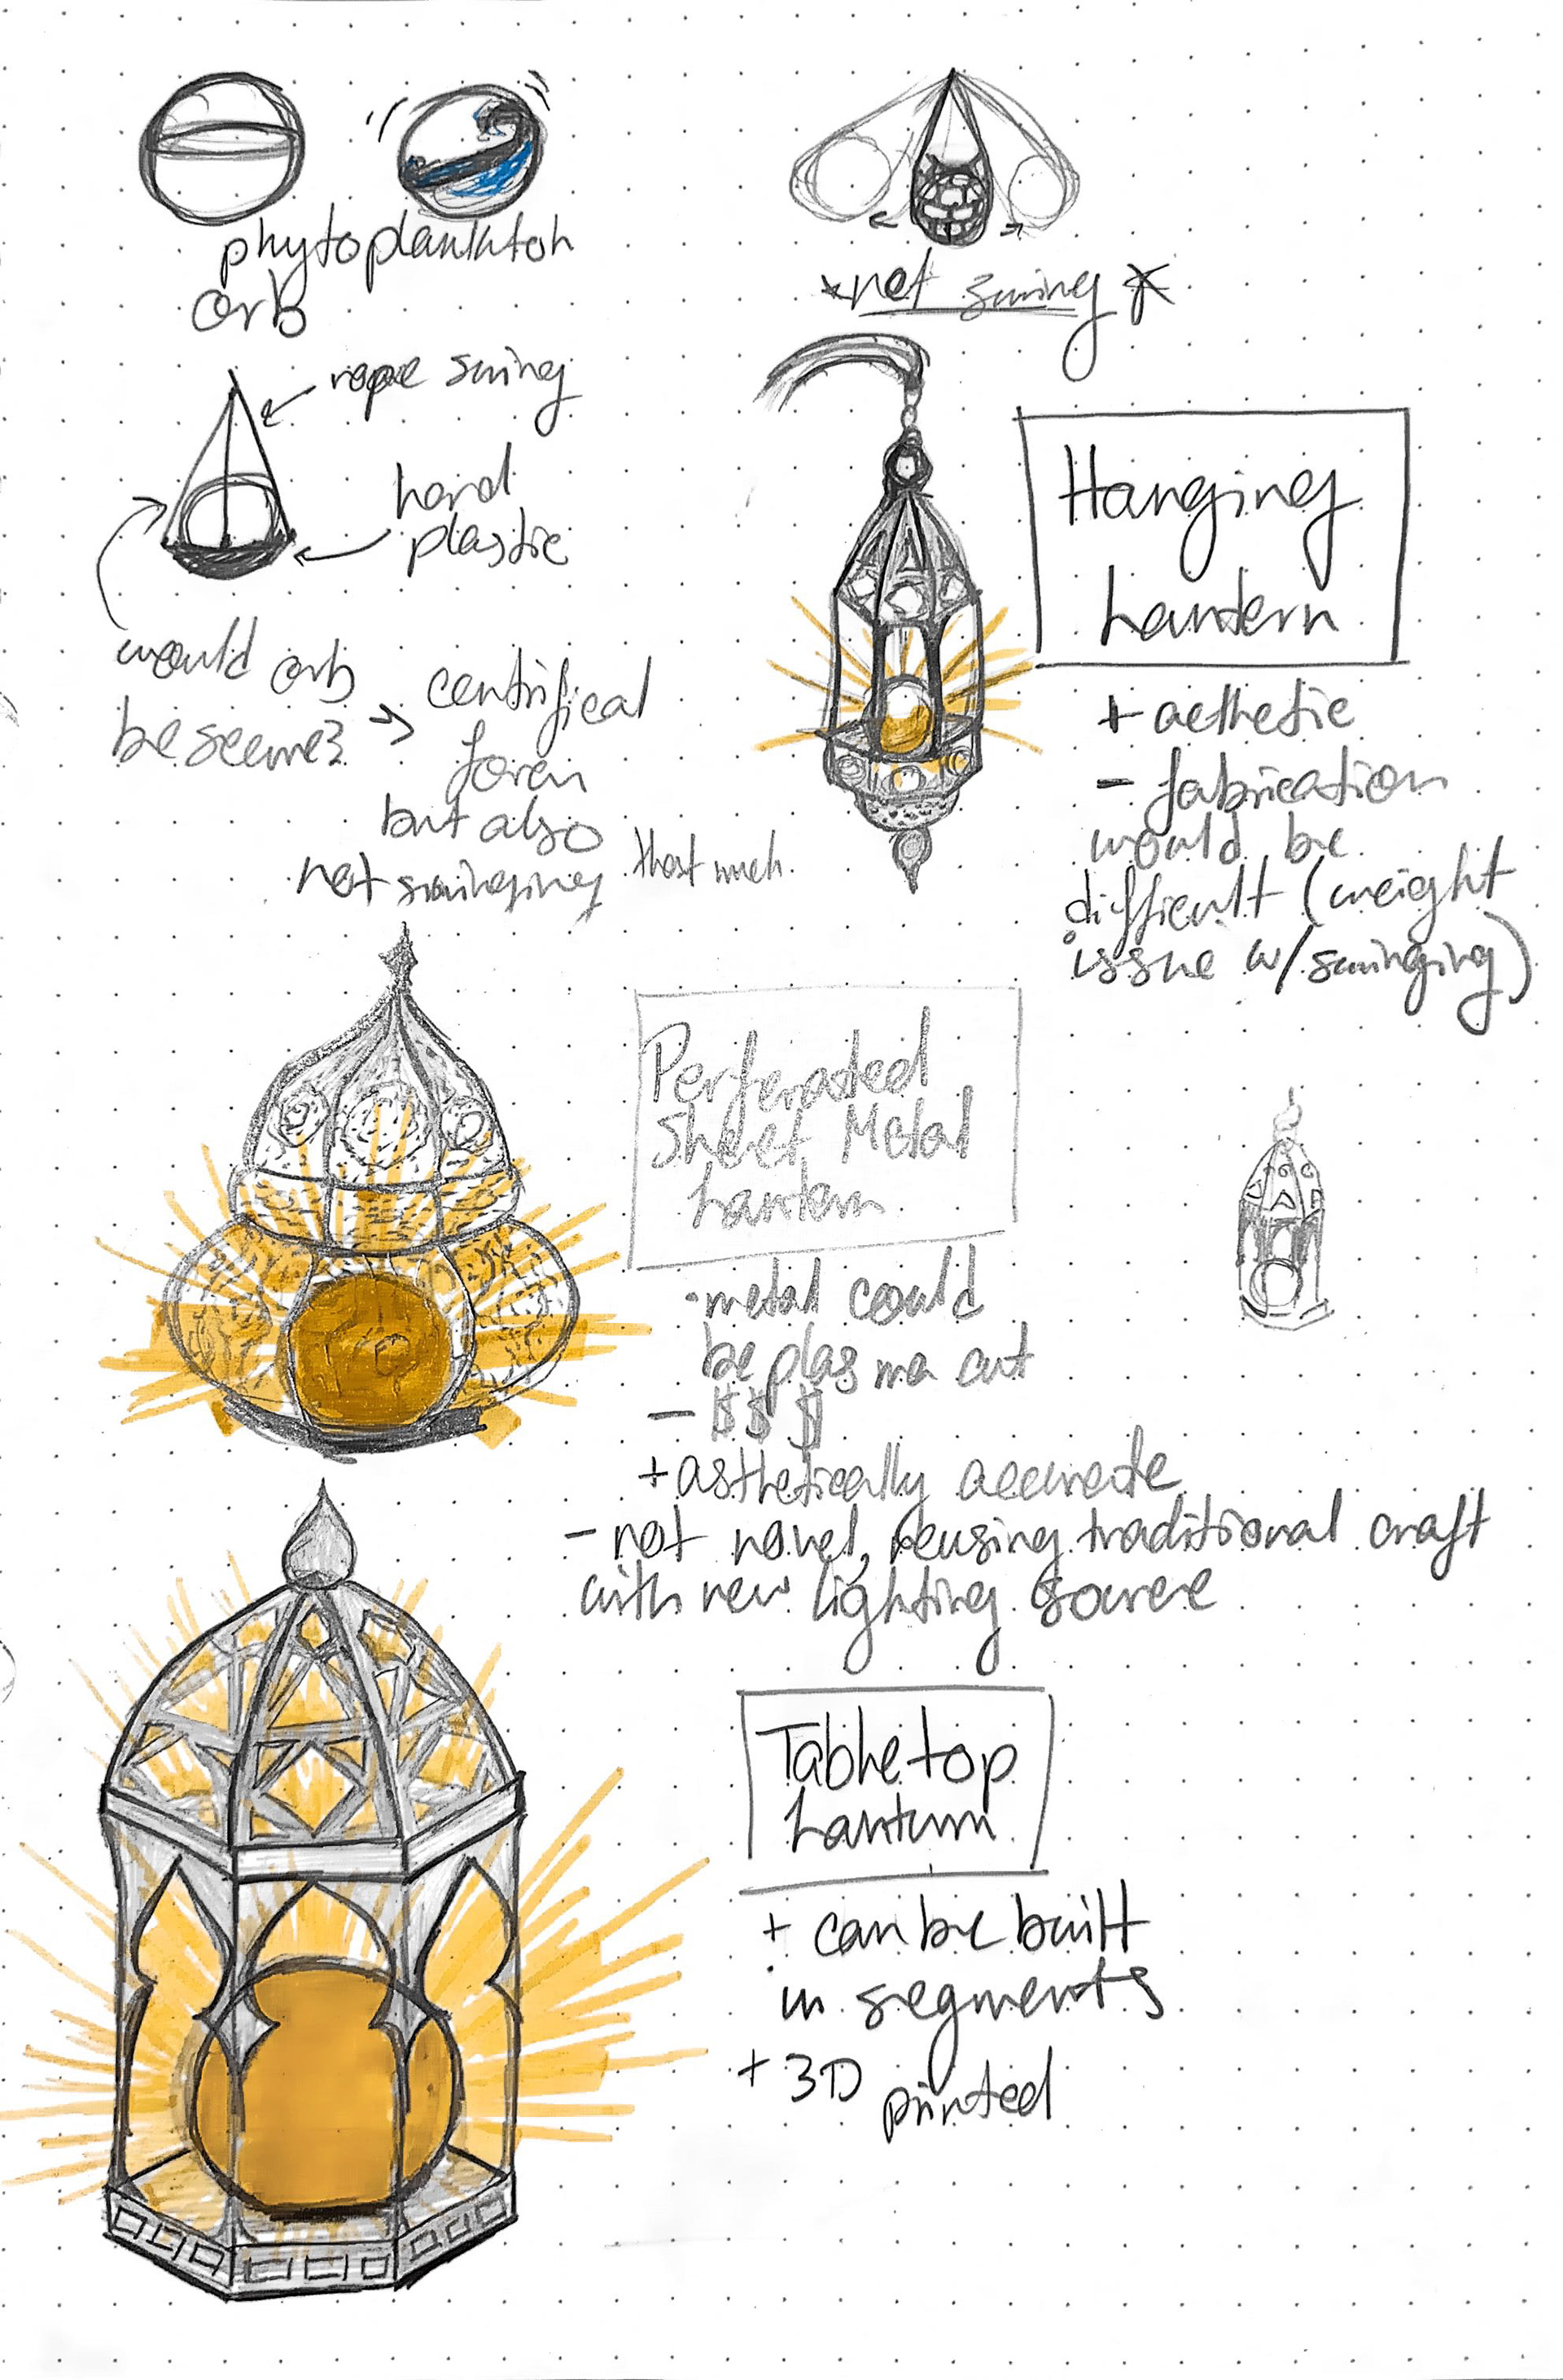 phytoplankton
orb
*net swing*
rope swing
hard
plastic
would orb
be seene?
→ centrifical
foren
but also
not swinging that much
Hanging
Lantern
+ aethetic
- fabrication
would be
difficult (weight
issue w/ swinging)
Perferated
Sheet Metal
Lantern
·metal could
be plasma cut
- $$$
+ asthetically accurate
- not novel, reusing traditional craft
with new lighting source
Tabletop
Lantern
+ can be built
in segments
+ 3D
printed